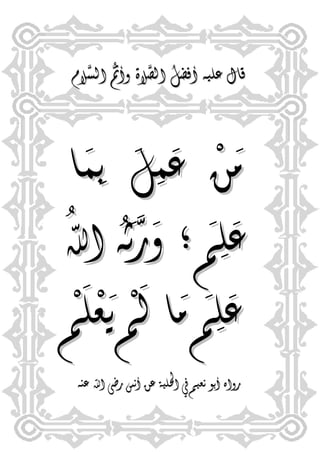 قال عليه أفضل الصَّلاة وأتمّ السَّلام
مَنْ عَمِلَ بِمَا
عَلِمَ ؛ وَرَّثَهُ اللهُ
عَلِمَ مَا لَمْ يَعْلَمْ
رواه أبو نعيم في الحلية عن أنس رضى الله عنه